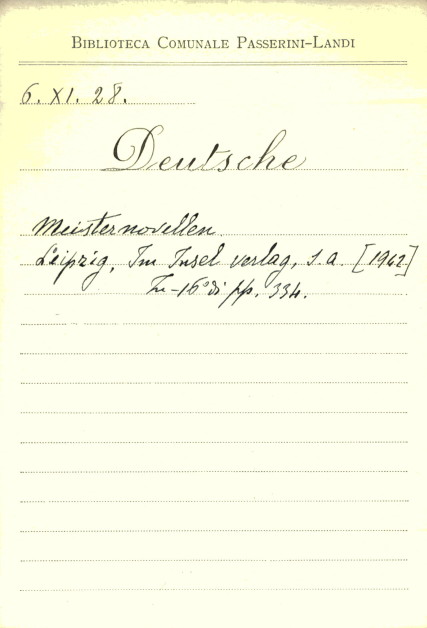 BIBLIOTECA COMUNALE PASSERINI-LANDI
6. XI. 28.
Deutsche
Meisternovellen
Leipzig, Im Insel verlag, s.a. [1942]
In-16° di pp. 334.